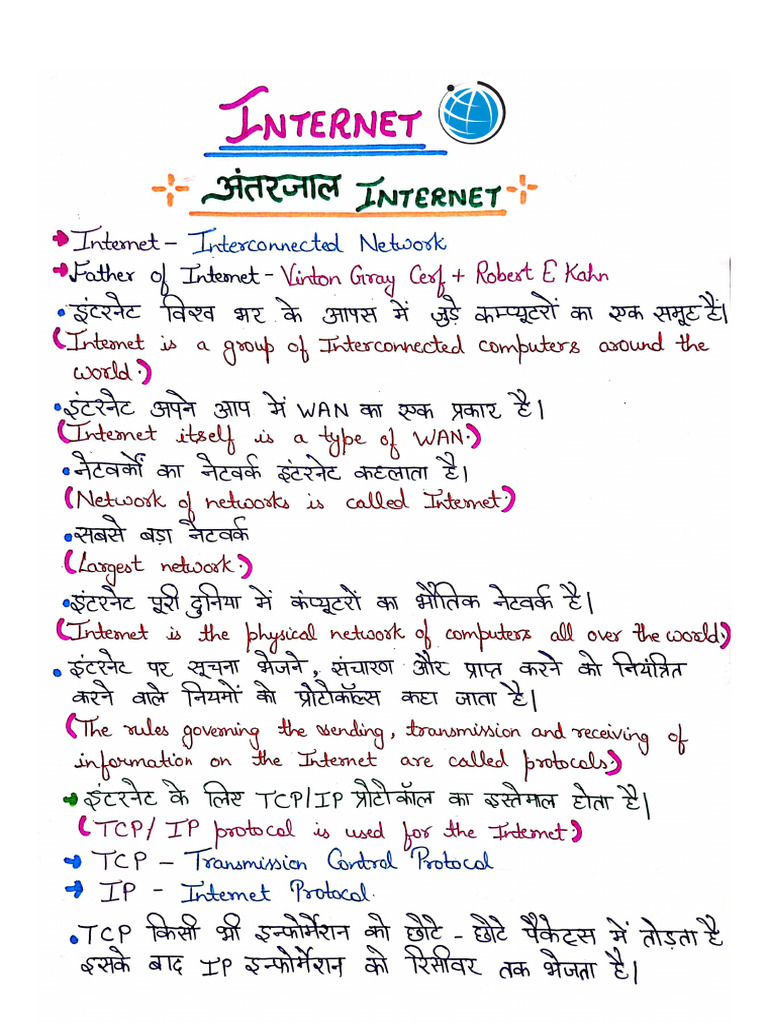 INTERNET
अंतरजाल INTERNET
Internet - Interconnected Network
Father of Internet - Vinton Gray Cerf + Robert E Kahn
इंटरनेट विश्व भर के आपस में जुड़े कम्प्यूटरों का एक समूह है।
(Internet is a group of Interconnected computers around the
world.)
इंटरनेट अपने आप में WAN का एक प्रकार है।
(Internet itself is a type of WAN.)
नेटवर्कों का नेटवर्क इंटरनेट कहलाता है।
(Network of networks is called Internet.)
सबसे बड़ा नेटवर्क
(Largest network.)
इंटरनेट पूरी दुनिया में कंप्यूटरों का भौतिक नेटवर्क है।
(Internet is the physical network of computers all over the world.)
इंटरनेट पर सूचना भेजने, संचारण और प्राप्त करने को नियंत्रित
करने वाले नियमों को प्रोटोकॉल्स कहा जाता है।
(The rules governing the sending, transmission and receiving of
information on the Internet are called protocols.)
इंटरनेट के लिए TCP/IP प्रोटोकॉल का इस्तेमाल होता है।
(TCP/IP protocol is used for the Internet.)
TCP - Transmission Control Protocol
IP - Internet Protocol.
TCP किसी भी इन्फोर्मेशन को छोटे - छोटे पैकेट्स में तोड़ता है
इसके बाद IP इन्फोर्मेशन को रिसीवर तक भेजता है।